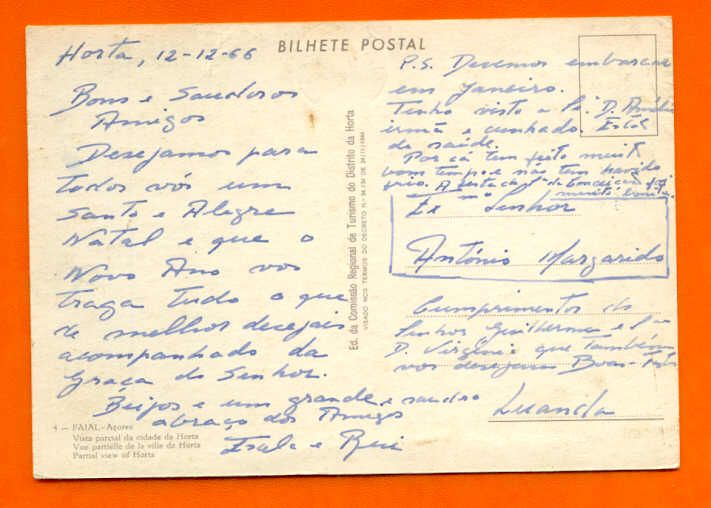 BILHETE POSTAL
Horta, 12-12-66
Bons e Saudosos
Amigos
Desejamos para
todos vós um
Santo e Alegre
Natal e que o
Novo Ano vos
traga tudo o que
de melhor desejais
acompanhado da
Graça do Senhor.
Beijos e um grande e saudoso
abraço dos Amigos
e Rui
4 — FAIAL - Açores
Vista parcial da cidade da Horta
Vue partielle de la ville de Horta
Partial view of Horta
Ed. da Comissão Regional de Turismo do Distrito da Horta
VISADO NOS TERMOS DO DECRETO N.
P.S. Devemos embarcar
em Janeiro.
Tenho visto a D. Amélia
irmã e cunhado.
de saúde.
Por cá tem feito muit
bom tempo e não tem havido
frio. A festa da Conceição foi
muito bonita.
Ex mo Senhor
António Margarido
Cumprimentos do
Senhor Guilherme e
D. Virginia que também
vos desejam Boas-Festas
Luanda